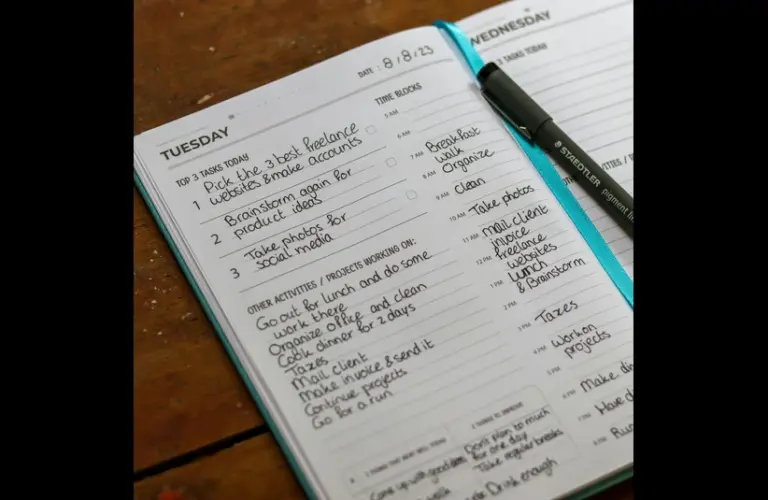 DATE: 8/8/23
TUESDAY
TOP 3 TASKS TODAY
1 Pick the 3 best freelance
websites & make accounts
2 Brainstorm again for
product ideas
3 Take photos for
social media
OTHER ACTIVITIES / PROJECTS WORKING ON:
Go out for lunch and do some
work there
Organize office and clean
Cook dinner for 2 days
Taxes
Mail client
Make invoice & send it
Continue projects
Go for a run
TIME BLOCKS
5 AM
6 AM
7 AM Breakfast
walk
8 AM Organize
9 AM clean
10 AM Take photos
11 AM mail client
invoice
12 PM freelance
websites
1 PM Lunch
& Brainstorm
2 PM
3 PM Taxes
4 PM work on
projects
5 PM Make din
Have d
Run
2 THINGS TO IMPROVE
Don't plan to much
for one day
Take regular breaks
Drink enough
3 THINGS THAT WENT WELL TODAY
Came up with good
walk
WEDNESDAY
3 TASKS TODAY
STAEDTLER pigment li